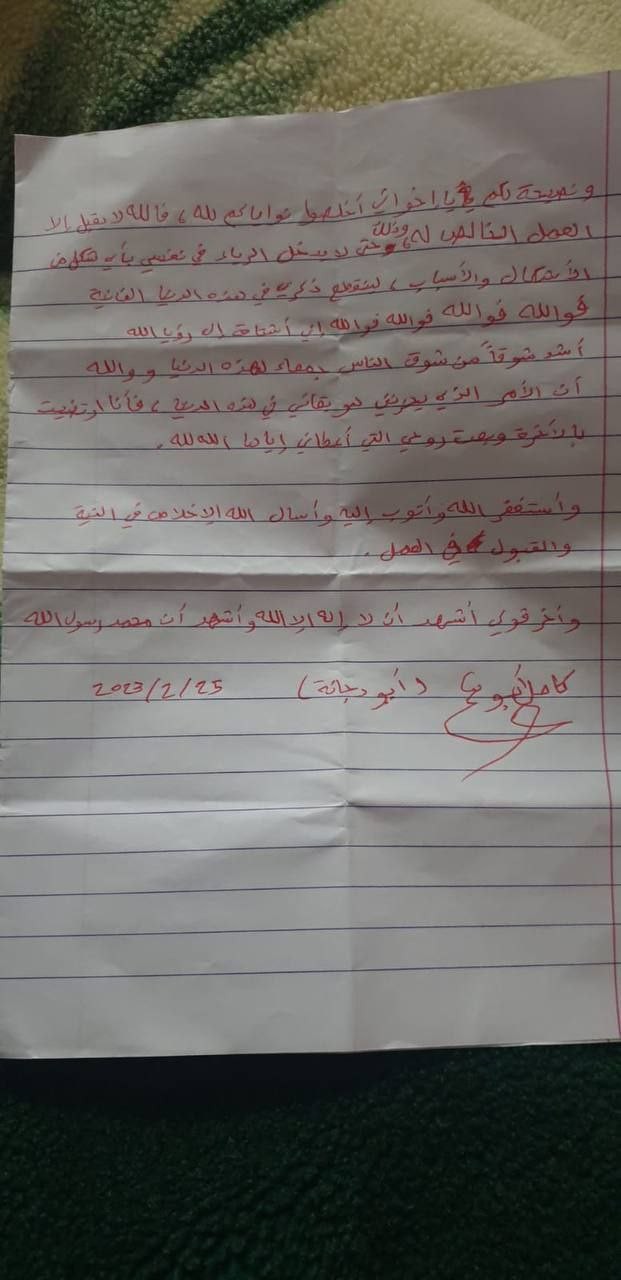 ونصيحة لكم يا اخواني أخلصوا نواياكم لله، فالله لا يقبل إلا
العمل الخالص له، وذلك حتى لا يدخل الرياء في نفسي بأي شكل من
الأشكال والأسباب، لينقطع ذكري في هذه الدنيا الفانية
فوالله فوالله فوالله فوالله إني أشتاق إلى رؤيا الله
أشد شوقاً من شوق الناس جمعاء لهذه الدنيا ووالله
أن الأمر الذي يحزنني هو بقائي في هذه الدنيا، فأنا ارتضيت
بالآخرة وبعت روحي التي أعطاني إياها الله لله.
وأستغفر الله وأتوب إليه وأسال الله الإخلاص في النية
والقبول في العمل.
وأخر قولي أشهد أن لا إله إلا الله وأشهد أن محمد رسول الله
كامل (أبو دجانة) 2023/2/25